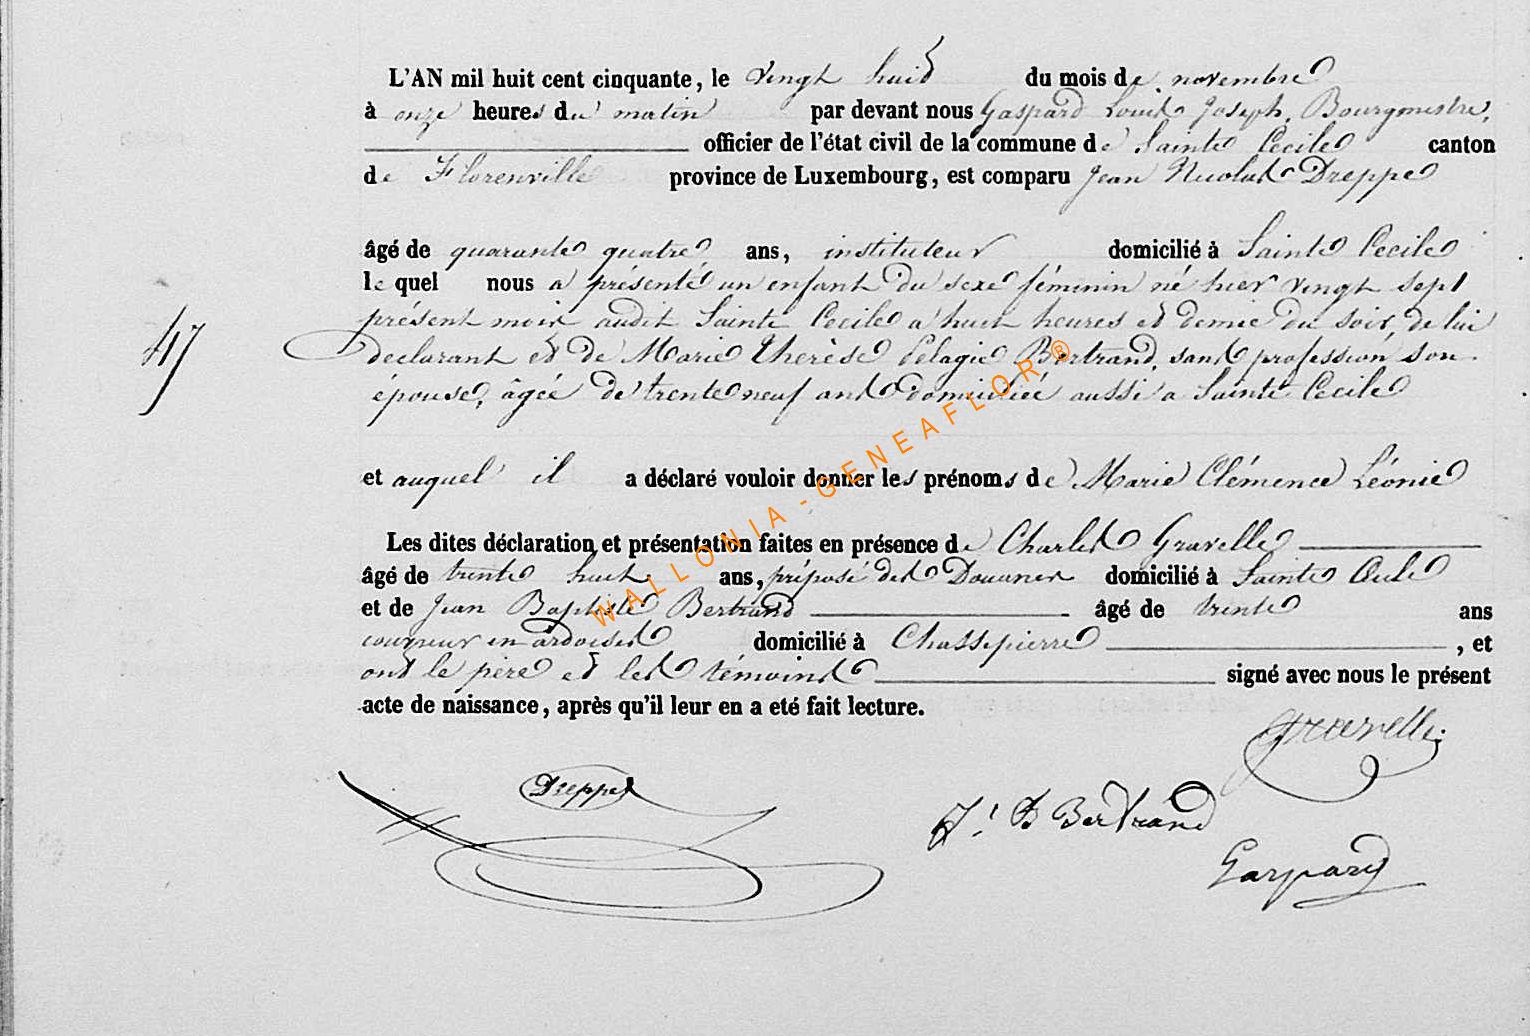 L'AN mil huit cent cinquante, le vingt huit du mois de novembre
à onze heures du matin par devant nous Gaspard Louis Joseph, Bourgmestre,
officier de l'état civil de la commune de Sainte Cecile canton
de Florenville province de Luxembourg, est comparu Jean Nicolas Dreppe
âgé de quarante quatre ans, instituteur domicilié à Sainte Cecile
lequel nous a présenté un enfant du sexe féminin né hier vingt sept
présent mois audit Sainte Cecile a huit heures et demie du soir, de lui
47
declarant et de Marie Therèse Pélagie Bertrand, sans profession son
épouse, âgée de trente neuf ans domiciliée aussi a Sainte Cecile
et auquel il a déclaré vouloir donner les prénoms de Marie Clémence Léonie
Les dites déclaration et présentation faites en présence de Charles Gravelle
âgé de trente huit ans, préposé des Douanes domicilié à Sainte Cecile
et de Jean Baptiste Bertrand âgé de trente ans
couvreur en ardoises domicilié à Chassepierre , et
ont le père et les témoins signé avec nous le présent
acte de naissance, après qu'il leur en a eté fait lecture.
Gravelle
Dreppe
J. B Bertrand
Gaspard
WALLONIA-GENEAFLOR®